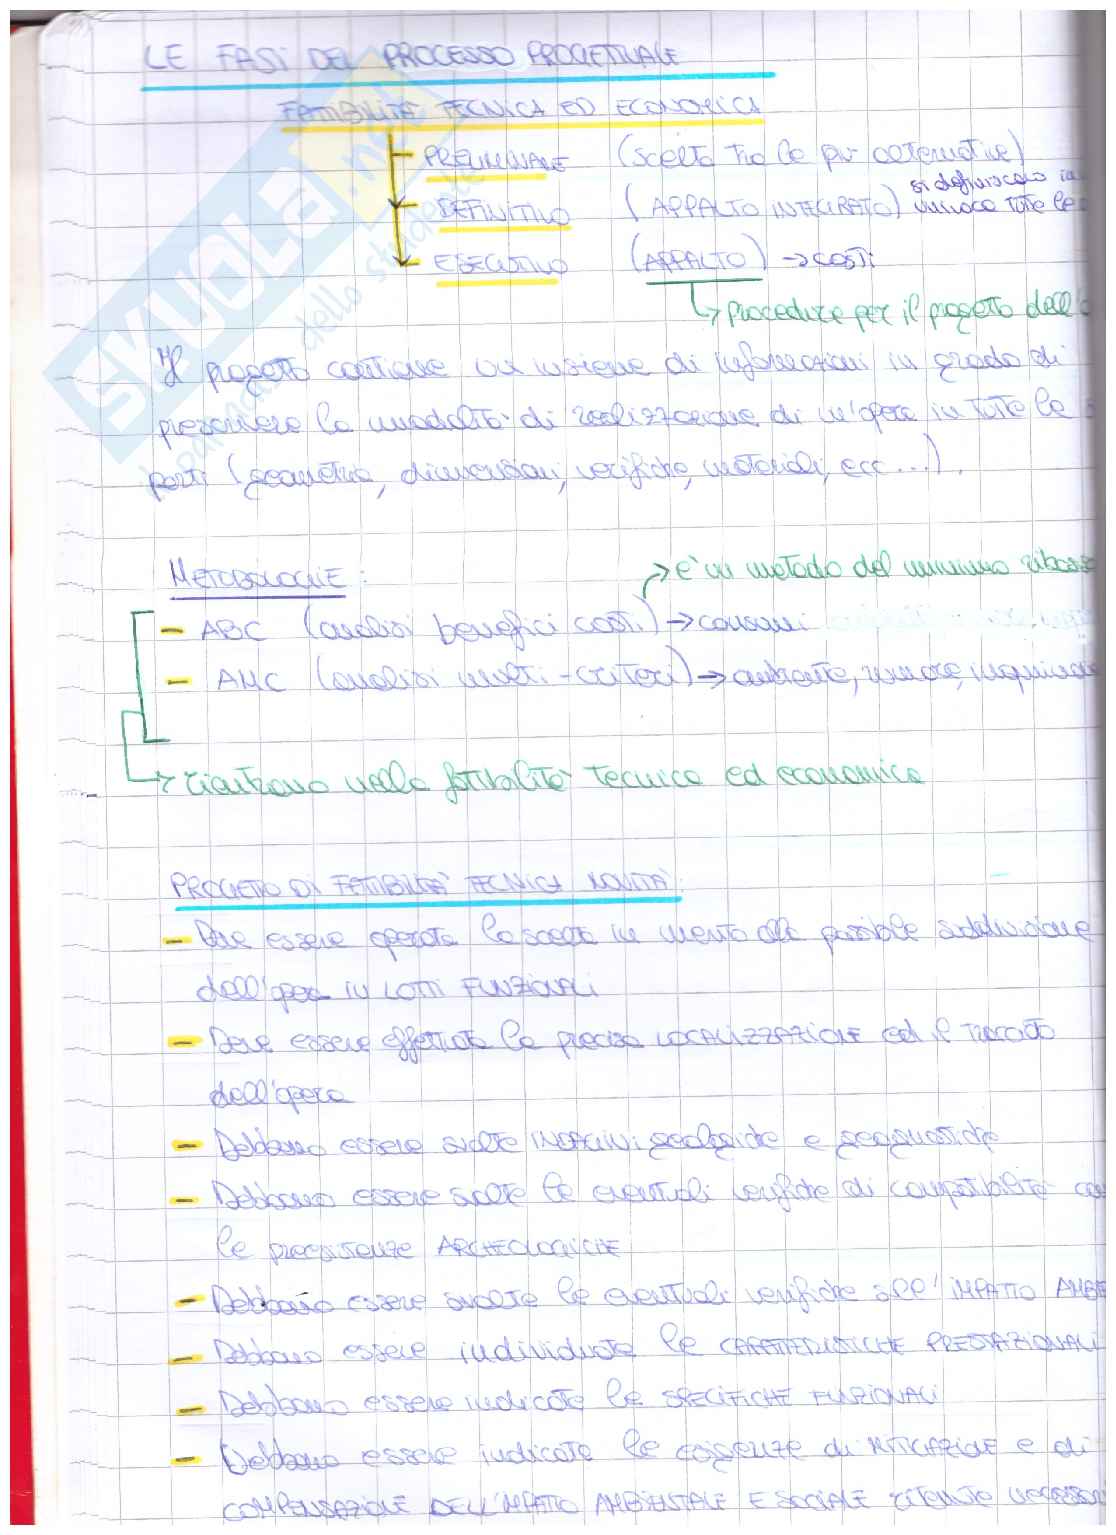 LE FASI DEL PROCESSO PROGETTUALE
FATTIBILITÀ TECNICA ED ECONOMICA
PRELIMINARE (scelta tra le più alternative)
DEFINITIVO (APPALTO INTEGRATO) si definiscono in
univoco tutte le
ESECUTIVO (APPALTO) → COSTI
↳ procedure per il progetto dell'
Il progetto contiene un insieme di informazioni in grado di
prescrivere la modalità di realizzazione di un'opera in tutte le
parti (geometria, dimensioni, verifiche, materiali, ecc...).
METODOLOGIE:
→ è un metodo del minimo ribasso
- ABC (analisi benefici costi) → consumi
- AMC (analisi multi-criteri) → ambiente, rumore,
→ rientrano nella fattibilità tecnica ed economica
PROGETTO DI FATTIBILITÀ TECNICA NOVITÀ:
- Deve essere operata la scelta in merito alla possibile suddivisione
dell'opera in LOTTI FUNZIONALI
- Deve essere effettuata la precisa LOCALIZZAZIONE ed il tracciato
dell'opera
- Debbono essere svolte INDAGINI geologiche e geognostiche
- Debbono essere svolte le eventuali verifiche di compatibilità con
le preesistenze ARCHEOLOGICHE
- Debbono essere svolte le eventuali verifiche all'IMPATTO AMBIE
- Debbono essere individuate le CARATTERISTICHE PRESTAZIONALI
- Debbono essere indicate le SPECIFICHE FUNZIONALI
- Debbono essere indicate le esigenze di MITIGAZIONE e di
COMPENSAZIONE DELL'IMPATTO AMBIENTALE E SOCIALE ritenute necessari
SKUOLA.net
la parte dello studente